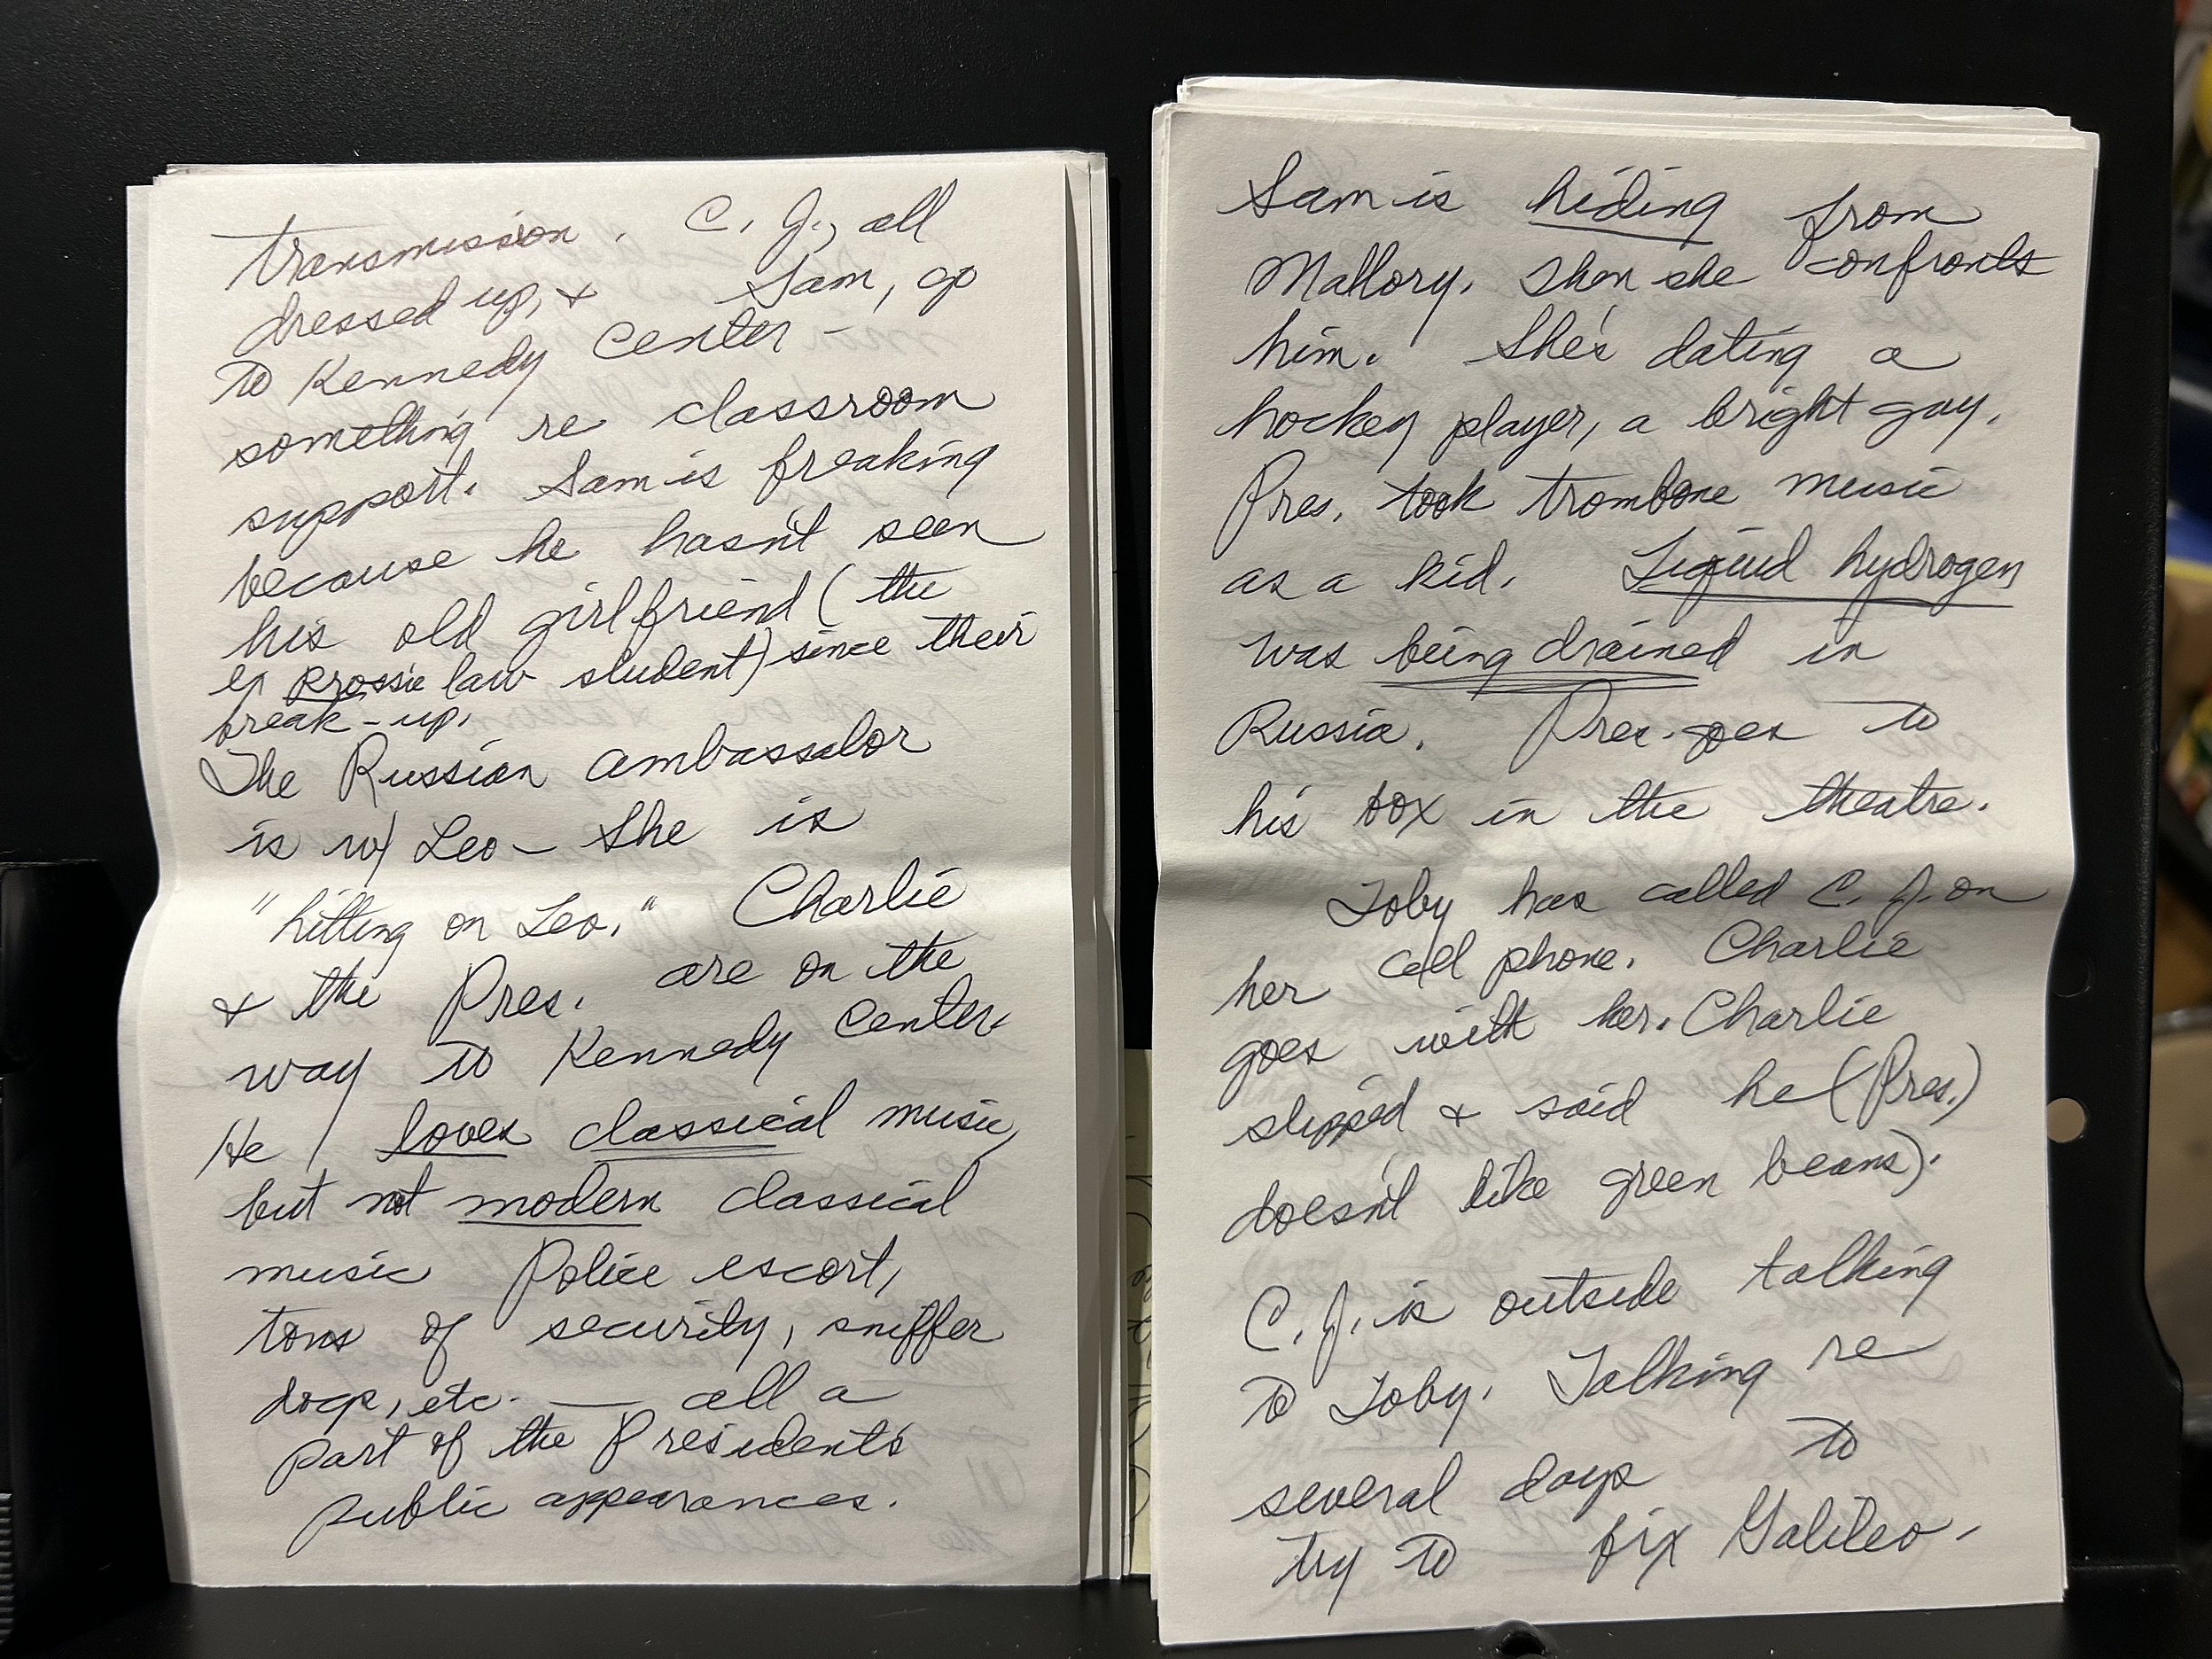 transmission. C. J., all
dressed up, & Sam, go
to Kennedy Center –
something re classroom
support. Sam is freaking
because he hasn't seen
his old girlfriend (the
law student) since their
break-up.
The Russian ambassador
is w/ Leo – She is
"hitting on Leo." Charlie
& the Pres. are on the
way to Kennedy Center.
He loves classical music,
but not modern classical
music Police escort,
tons of security, sniffer
dogs, etc. — all a
part of the President's
public appearances.
Sam is hiding from
Mallory. Then she confronts
him. She's dating a
hockey player, a bright guy.
Pres. took trombone music
as a kid. Liquid hydrogen
was being drained in
Russia. Pres. goes to
his box in the theatre.
Toby has called C. J. on
her cell phone. Charlie
goes with her. Charlie
slipped & said he (Pres.)
doesn't like green beans).
C. J. is outside talking
to Toby. Talking re
several days to
try to fix Galileo.